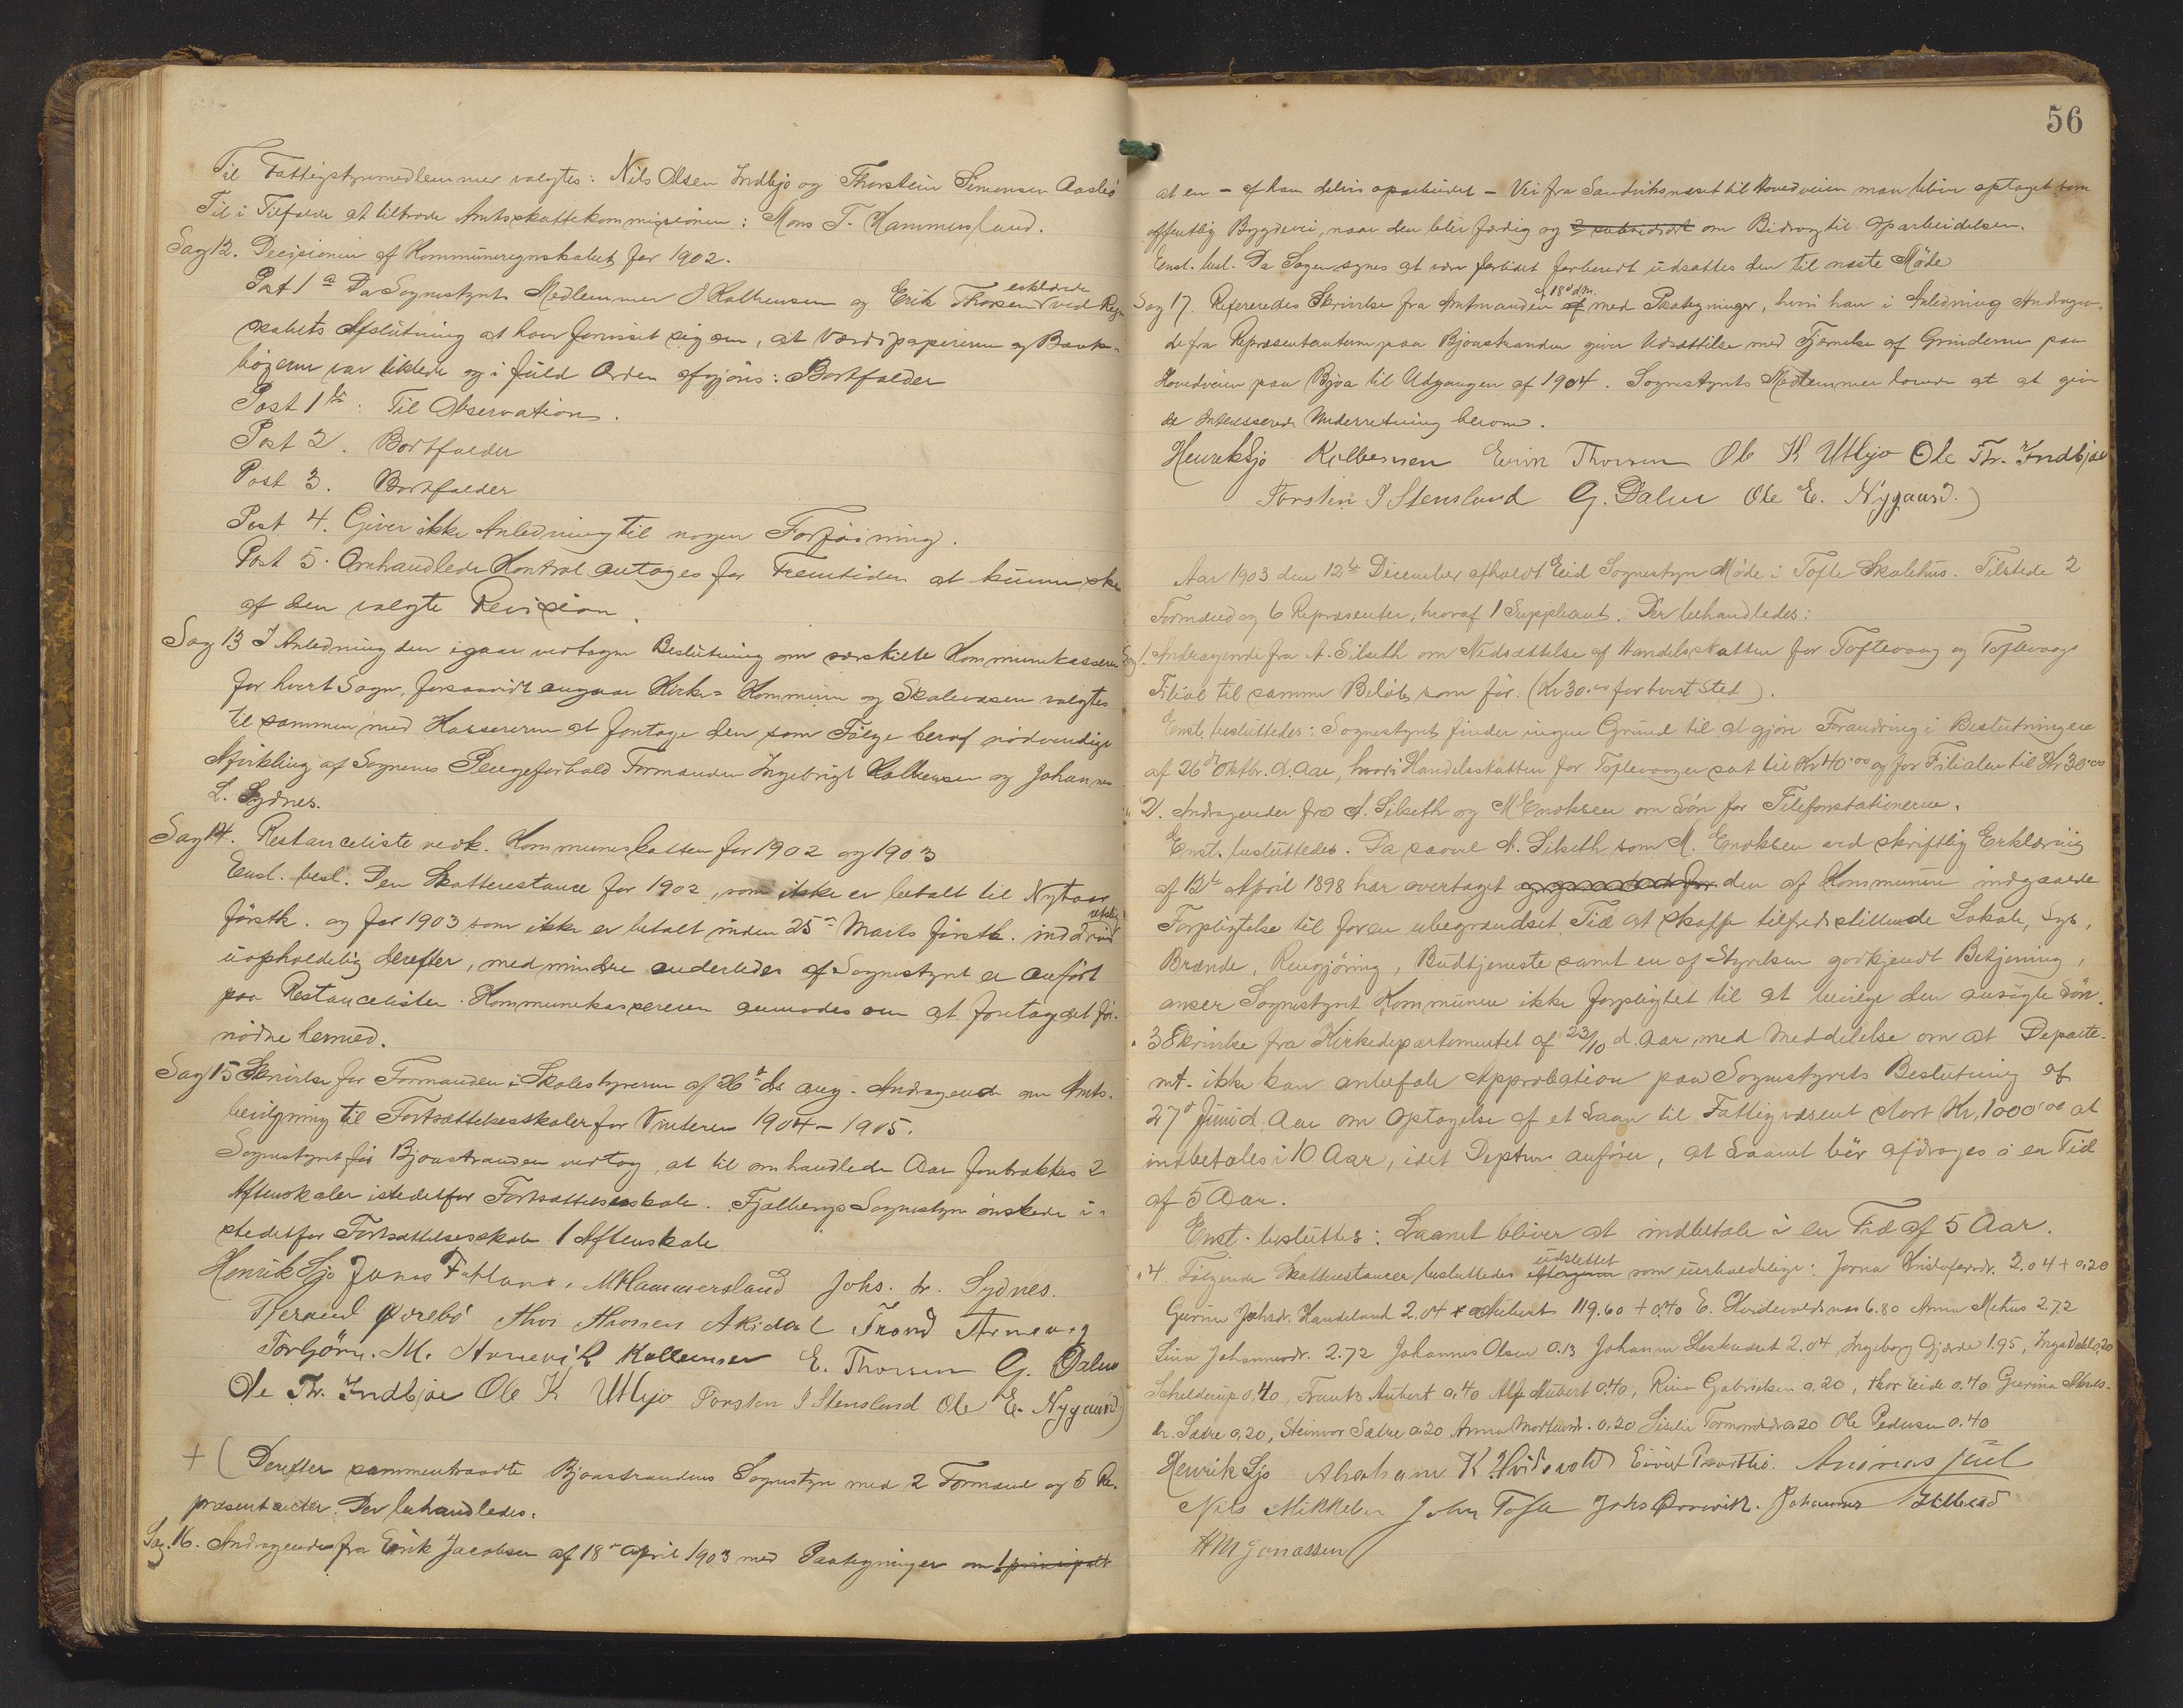 Til Fattigstyremedlemmer valgtes: Nils Olsen Indbjo og Thorstein Simonsen Aasbö
Til i Tilfælde at tiltræde Amtsskattekommissionen: Mons T. Hammersland.
Sag 12. Decisionen af Kommuneregnskabet for 1902.
Post 1 a Da Sognestyrets Medlemmer I Kolbensen og Erik Thorsen erklærede ved Regn-
skabets Afslutning at have forvisset sig om, at Værdipapirerne og Bank-
bögerne var tilstede og i fuld Orden afgjöres: Bortfalder
Post 1 b: Til Observation.
Post 2. Bortfalder
Post 3. Bortfalder
Post 4. Giver ikke Anledning til nogen Forföining.
Post 5. Omhandlede Kontrol antages for Fremtiden at kunne ske
af den valgte Revision.
Sag 13 I Anledning den igaar vedtagne Beslutning om særskilte Kommunekasserer
for hvert Sogn, forsaavidt angaar Kirke- Kommune og Skolevæsen valgtes
til sammen med Kassereren at foretage den som Fölge heraf nödvendige
Afvikling af Sognenes Pengeforhold Formanden Ingebrigt Kolbensen og Johannes
L. Sydnes.
Sag 14. Restanceliste vedk. Kommuneskatten for 1902 og 1903
Enst. besl. Den Skatterestance for 1902, som ikke er betalt til Nytaar
förstk. og for 1903 som ikke er betalt inden 25de Marts förstk. inddrives retslig
uopholdelig derefter, medmindre anderledes af Sognestyret er anfört
paa Restancelisten. Kommunekassereren anmodes om at foretage det for-
nödne hermed.
Sag 15 Skrivelse fra Formanden i Skolestyrerne af 26de ds ang. Andragende om Amts-
bevilgning til Fortsættelsesskoler for Vinteren 1904-1905.
Sognestyret for Bjoastranden vedtog, at til omhandlede Aar foretrækkes 2
Aftenskoler istedetfor Fortsættelsesskole. Fjelbergs Sognestyre önskede i-
stedetfor Fortsættelsesskole 1 Aftenskole
Henrik Sjo Jonas Fatland, M Hammersland Johs. L. Sydnes.
Tjerand Ørebö Thor Thorsen A Kidal Trond Arnevig
Torbjörn. M. Kolbensen E. Thorsen G. Dalen
Ole Th. Indbjoe Ole K Utbjo Torsten I Stensland Ole E. Nygaard)
+ (Derefter sammentraadte Bjoastrandens Sognestyre med 2 Formænd og 5 Re-
præsentanter. Der behandledes.
Sag. 16. Andragende fra Erik Jacobsen af 18de April 1903 med Paategninger om 1 principalt
56
at en - af ham delvis oparbeidet - Vei fra Sandviksnæset til Hovedveien maa blive optaget som
offentlig Bygdevei, naar den blir færdig og 2 subsidiært om Bidrag til Oparbeidelsen.
Enst. besl. Da Sagen synes at være forlidet forberedt udsættes den til næste Möde
Sag 17. Refereredes Skrivelse fra Amtmanden af 18de dm. med Paategninger, hvori han i Anledning Andragen-
de fra Repræsentanterne paa Bjoastranden giver Udsættelse med Fjernelse af Grinderne paa
Hovedveien paa Bjoa til Udgangen af 1904. Sognestyrets Medlemmer lovede at at give
de Interesserede Underretning herom.
Henrik Sjo Kolbensen Erik Thorsen Ole K Utbjo Ole Th. Indbjoe
Torsten I Stensland G. Dalen Ole E. Nygaard.)
Aar 1903 den 12te December afholdt Eid Sognestyre Möde i Tofte Skolehus. Tilstede 2
Formænd og 6 Repræsenter, hvoraf 1 Suppleant. Der behandledes:
Sag 1. Andragende fra A. Silseth om Nedsættelse af Handelsskatten for Toftevaag og Toftevaags
Filial til samme Belöb som för. (Kr 30.00 for hvert Sted).
Enst. besluttedes: Sognestyret finder ingen Grund til at gjöre Forandring i Beslutningen
af 26de Oktbr. d. Aar, hvori Handelsskatten for Toftevaagen sat til Kr 40.00 og for Filialen til Kr 30.00
" 2. Andragender fra A. Silseth og M Enoksen om Lön for Telefonstationerne.
Enst. besluttedes. Da saavel A. Silseth som M. Enoksen ved skriftlig Erklæring
af 12te April 1898 har overtaget den af Kommunen indgaaede
Forpligtelse til for en ubegrændset Tid at skaffe tilfredsstillende Lokale, Lys,
Brænde, Rengjöring, Budtjeneste samt en af Styrelsen godkjendt Betjening,
anser Sognestyret Kommunen ikke forpligtet til at bevilge den ansögte Lön.
" 3 Skrivelse fra Kirkedepartementet af 23/10 d. Aar med Meddelelse om at Departe-
mt. ikke kan anbefale Approbation paa Sognestyrets Beslutning af
27de Juni d. Aar om Optagelse af et Laan til Fattigvæsenet stort Kr. 1000.00 at
indbetales i 10 Aar, idet Deptmt. anförer, at Laanet bör afdrages i en Tid
af 5 Aar.
Enst. besluttes: Laanet bliver at indbetale i en Tid af 5 Aar.
" 4. Fölgende Skatterestancer besluttedes udslettet som uerholdelige: Jorna Kristofersdr. 2.04 + 0.20
Gurine Johsdr. Handeland 2.04 Aubert 119.60 + 0.40 E. Hvidevoldsnæs 6.80 Anna Mehus 2.72
Lina Johannesdr. 2.72 Johannes Olsen 0.13 Johanne Heskadst 2.04, Ingeborg Gjerde 1.95, Inga Dahl 0,20
Schelderup 0.40, Frants Aubert 0.40 Alf Aubert 0.40, Gabrielsen 0.20, Thor Eide 0.40 Gurina
dr. Sætre 0.20, Steinvor Sætre 0.20 Anna Mortensdr. 0.20 Tormodsdr 0.20 Ole Pedersen 0.40
Henrik Sjo Abraham K Hvidevold Eivind Andreas Juul
Nils Mikkelsen John Tofte Johs Johannes
H M Jonassen